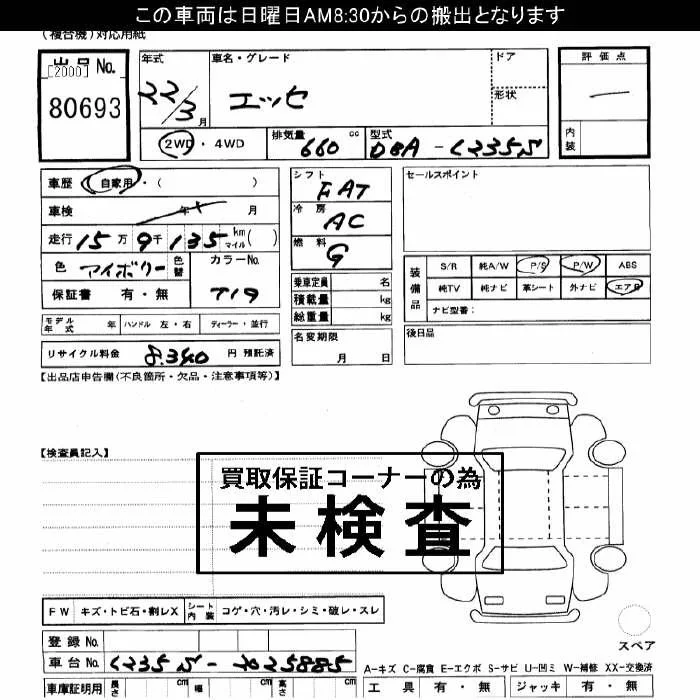 この車両は日曜日AM8:30からの搬出となります
(複合機)対応用紙
出品 No.
[2000]
80693
年式 車名・グレード ドア 評価点
22/3月 エッセ 形状
2WD・4WD 排気量 660 cc 型式 DBA-L235S 内装
車歴 自家用・( ) シフト FAT セールスポイント
車検 年 月 冷房 AC
走行 15万9千135 kmマイル( ) 燃料 G
色 アイボリー 色替 カラーNo. T19
保証書 有・無
乗車定員 名
積載量 kg
総重量 kg
装備品 S/R 純A/W P/S P/W ABS
純TV 純ナビ 革シート 外ナビ エアB
ナビ型番:
モデル年式 年 ハンドル 左・右 ディーラー・並行 名変期限 月 日 後日品
リサイクル料金 8.340 円 預託済
【出品店申告欄(不良箇所・欠品・注意事項等)】
【検査員記入】
買取保証コーナーの為
未検査
FW キズ・トビ石・割レX シート内装 コゲ・穴・汚レ・シミ・破レ・スレ
スペア
登録 No.
車台 No. L235S-2025885
A-キズ C-腐食 E-エクボ S-サビ U-凹ミ W-補修 XX-交換済
車庫証明用 長さ cm 幅 cm 高さ cm 工具 有・無 ジャッキ 有・無